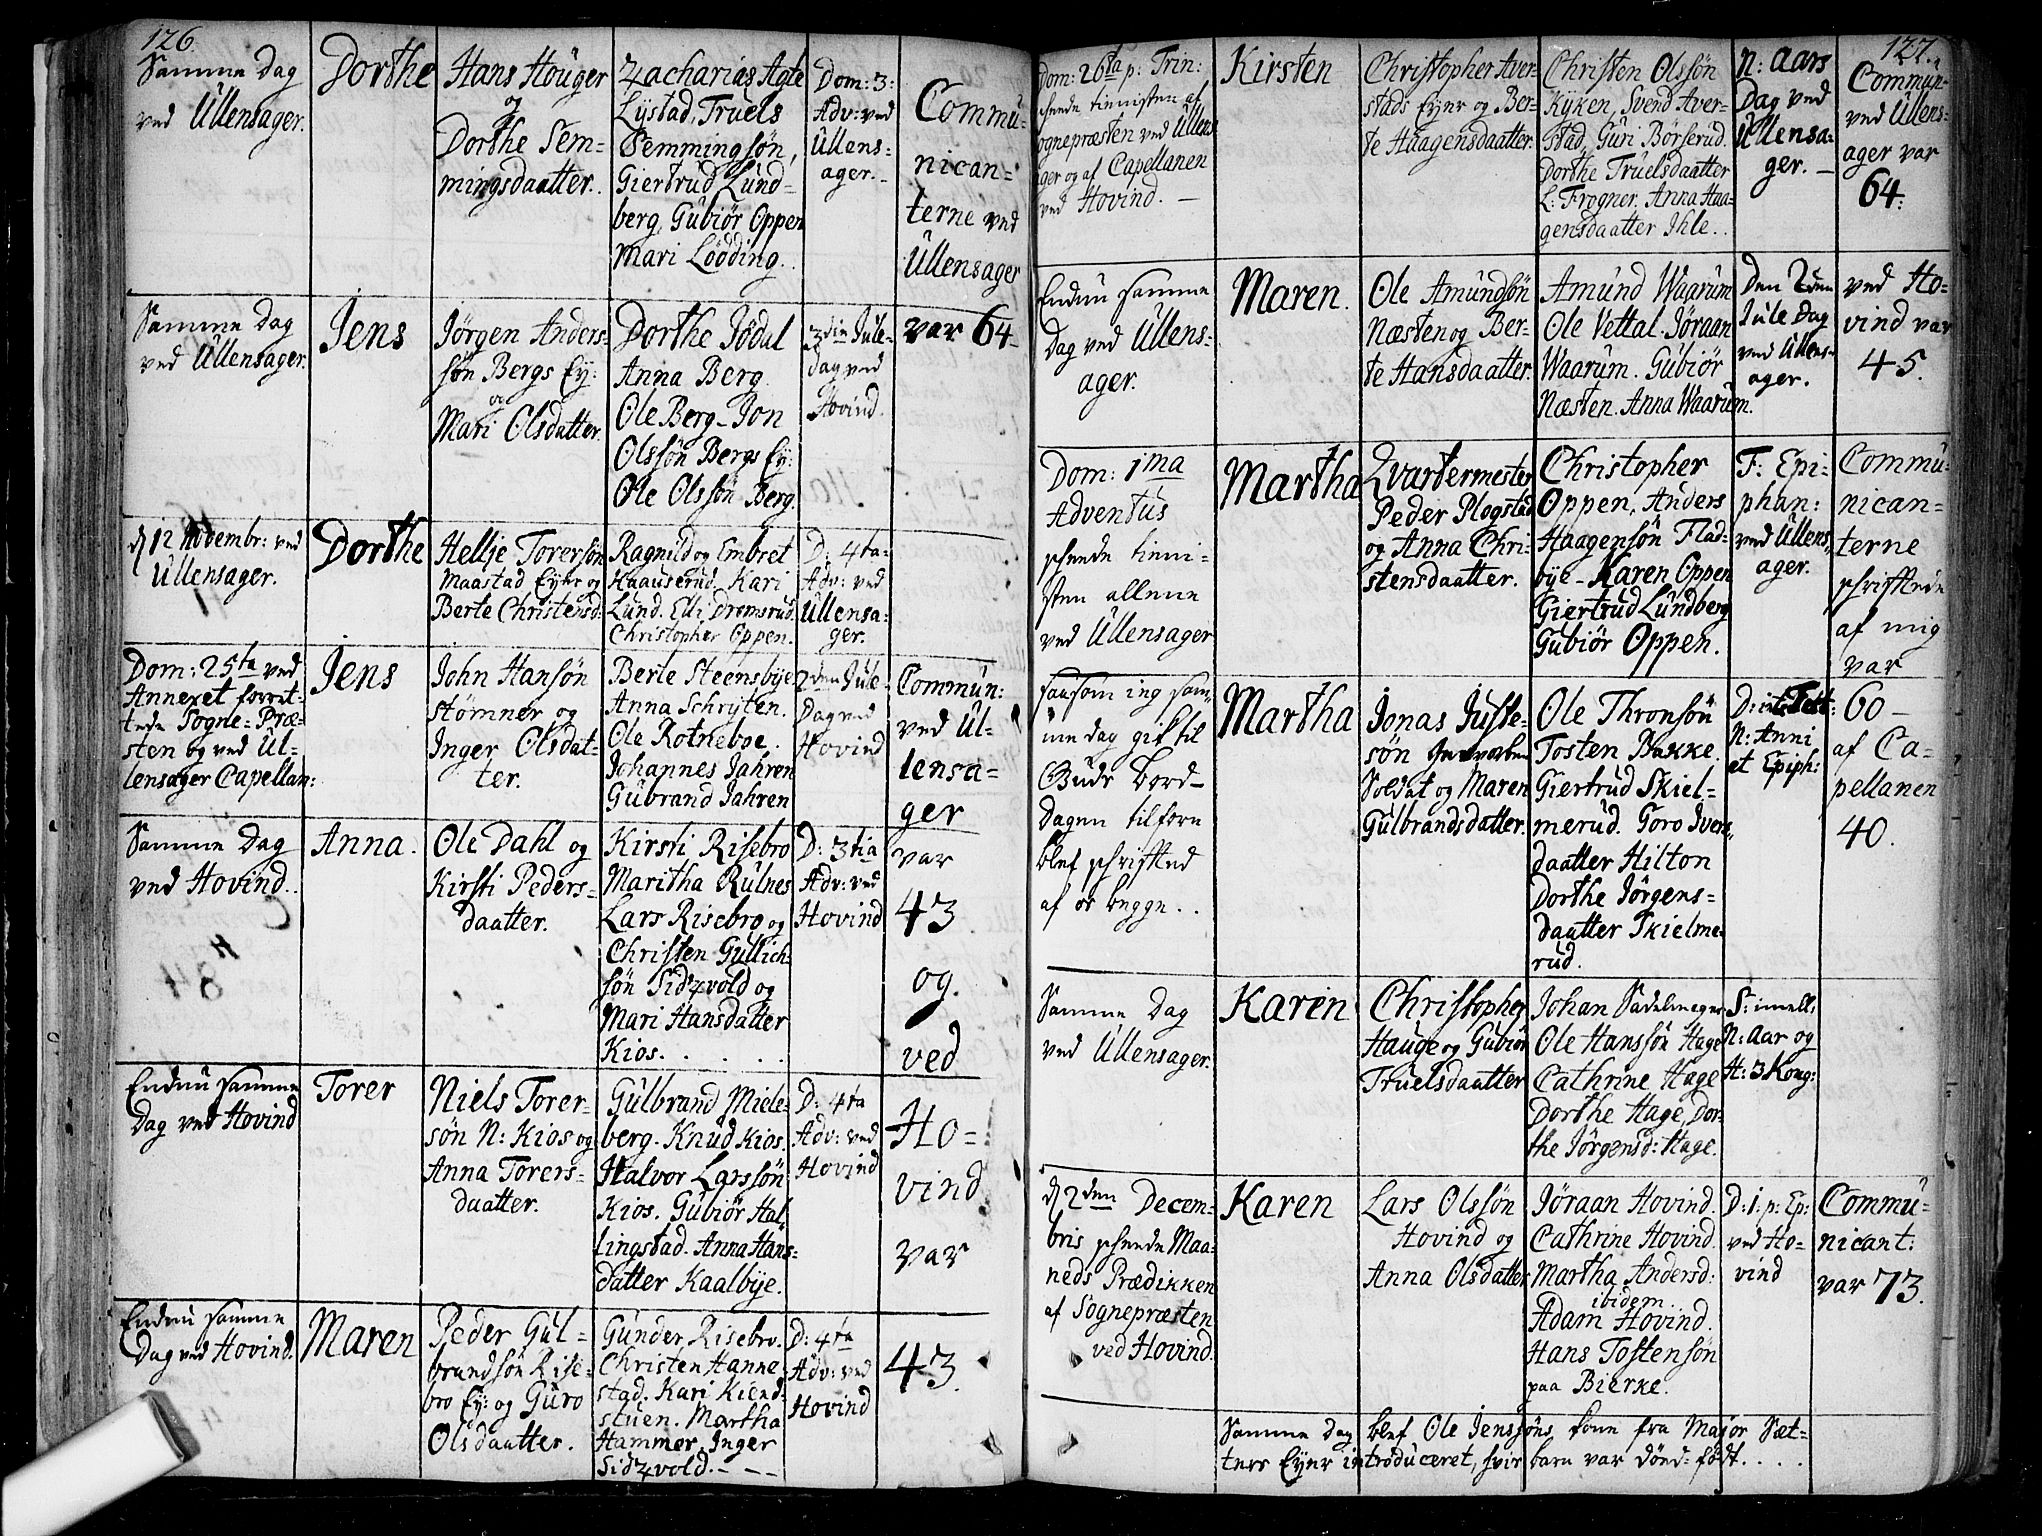 126.
Samme Dag
ved Ullensager.
Dorthe
Hans Houger
og
Dorthe Sem=
mingsdaatter.
Zacharias Agte
Lystad, Truels
Semmingsøn,
Giertrud Lund=
berg, Gubiør Oppen
Mari Løøding.
Dom: 3:
Adv: ved
Ullens=
ager.
Commu=
nican=
terne ved
Ullensager
var 64
Samme Dag
ved Ullensager.
Jens
Jørgen Anders=
søn Bergs Ey:
og
Mari Olsdatter.
Dorthe Jødal
Anna Berg.
Ole Berg. Jon
Olssøn Bergs Ey:
Ole Olssøn Berg.
3die Jule=
dag ved
Hovind.
d 12 Novembr: ved
Ullensager.
Dorthe
Hellje Torersøn
Maastad Eyer og
Berte Christensd:
Ragnild og Embret
Haauserud. Kari
Lund. Elli Dromsrud
Christopher Oppen.
D: 4ta
Adv: ved
Ullensa=
ger.
Dom: 25ta ved
Annexet forret=
tede Sogne=Præ=
sten og ved Ul=
lensager Capellan:
Jens
John Hansøn
Stømner og
Inger Olsdat=
ter.
Berte Steensbye
Anna Schrijten.
Ole Rotneboe.
Johannes Jahren
Gubrand Jahren
2den Jule=
Dag ved
Hovind
Commun:
ved Ul=
lensa=
ger
var
43
og
ved
Ho=
vind
var
43.
Samme Dag
ved Hovind.
Anna.
Ole Dahl og
Kirsti Peders=
daatter.
Kirsti Risebro
Maritha Rulnes
Lars Risebro og
Christen Gullich=
søn Sidzvold og
Mari Hansdatter
Kios.
D: 3tia
Adv: ved
Hovind
Endnu samme
Dag ved Hovind
Torer
Niels Torer=
søn N: Kios og
Anna Torers=
daatter.
Gulbrand Miele=
berg. Knud Kios.
Halvor Larssøn
Kios. Gubiør Hal=
lingstad. Anna Hans=
datter Kaalbye.
D: 4ta
Adv: ved
Hovind
Endnu samme
Dag ved Hovind.
Maren
Peder Gul=
brandsøn Rise=
bro Ey: og Guro
Olsdaatter.
Gunder Risebro.
Christen Hanne=
stad. Kari Kiend=
stuen. Martha
Hammer, Inger
Sidzvold.
D: 4ta
Adv: ved
Hovind
127.
Dom: 26ta p: Trin:
skeede tienisten af
Sognepræsten ved Ullens=
ager og af Capellanen
ved Hovind.
Kirsten
Christopher Aver=
stads Eyer og Ber=
te Haagensdaatter.
Christen Olssøn
Kyken, Svend Aver=
stad, Guri Børserud.
Dorthe Truelsdaatter
L: Frogner. Anna Haa=
gensdaatter Ihle.
N: Aars
Dag ved
Ullensa=
ger.
Commun:
ved Ullens=
ager var
64.
Endnu samme
Dag ved Ullens=
ager.
Maren.
Ole Amundsøn
Næsten og Ber=
te Hansdaatter.
Amund Waarum
Ole Vettal. Jøraan
Waarum. Gubiør
Næsten. Anna Waarum.
Den 2den
Jule Dag
ved Ullens=
ager.
ved Ho=
vind var
45.
Dom: 1ma
Adventus
skeede tieni=
sten alleene
ved Ullensager
saasom ing sam=
me dag gik til
Guds bord
Dagen tilforn
blef skrifted
af os begge.
Martha
Qvartermester
Peder Plogstad
og Anna Chri=
stensdaatter.
Christopher
Oppen, Anders
Haagensøn Flad=
bye. Karen Oppen
Giertrud Lundberg
Gubiør Oppen.
F: Epi=
phan:
ved Ullens,
ager.
Commu=
nican=
terne
skrifftede
af mig
var
60
af Ca=
pellanen
40.
Martha
Jonas Juste=
søn
Soldat og Maren
Gulbrandsdatter.
Ole Thronsøn
Tosten Bakke.
Giertrud Skiel=
merud. Toro Ivers=
daatter Hilton
Dorthe Jørgens=
daatter Skielme
rud.
N: Anni
et Epiph:
Samme Dag
ved Ullensager.
Karen
Christopher
Hauge og Gubiør
Truelsdaatter
Johan Sadelmager
Ole Hanssøn Hage
Cathrine Hage
Dorthe Hage, Dor=
the Jørgensd: Hage.
S: imell:
N: Aar og
H: 3 Kong:
d 2den Decem=
bris skeede Maa=
neds Prædikken
af Sognepræsten
ved Hovind.
Karen
Lars Olssøn
Hovind og
Anna Olsdatter
Jøraan Hovind.
Cathrine Hovind
Martha Andersd:
ibidem.
Adam Hovind.
Hans Tostensøn
paa Bierke.
D: 1: p: Ep:
ved Ho=
vind
Commu=
nicant:
var 73.
Samme Dag blef Ole Jenssøns kone fra Major Sæt=
ters Eyer introduceret, hvis barn var død=født.